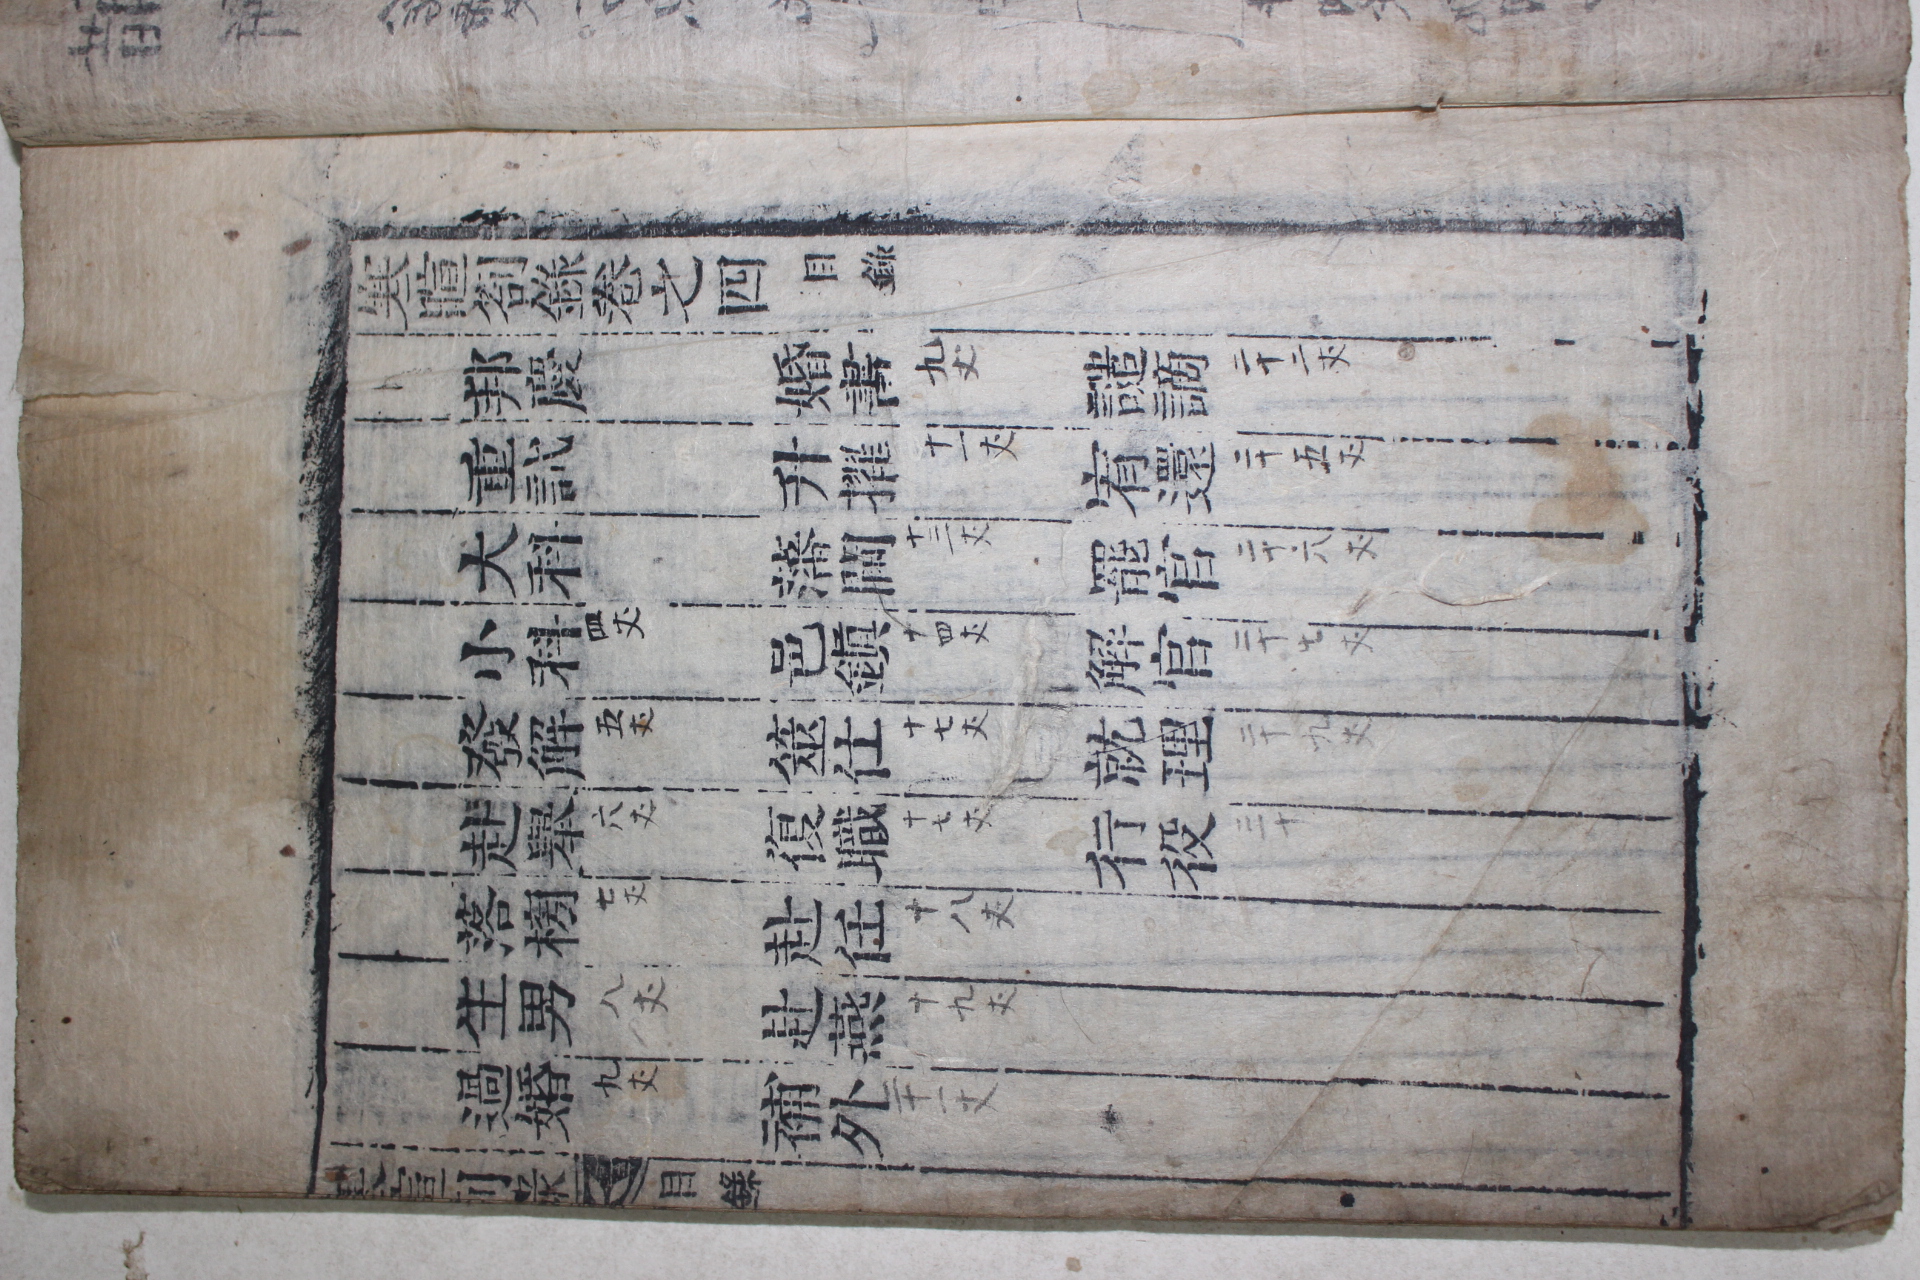 寒暄箚錄卷之四 目錄
邦慶 婚書 九丈 譴謫 二十二丈
重試 升擢 十一丈 宥還 二十五丈
大科 藩閫 十三丈 罷官 二十六丈
小科 四丈 邑鎭 十四丈 解官 二十七丈
發解 五丈 筮仕 十七丈 就理 二十九丈
赴擧 六丈 復職 十七丈 行役 三十
落榜 七丈 赴任 十八丈
生男 八丈 赴燕 十九丈
過婚 九丈 補外 二十一丈
目錄